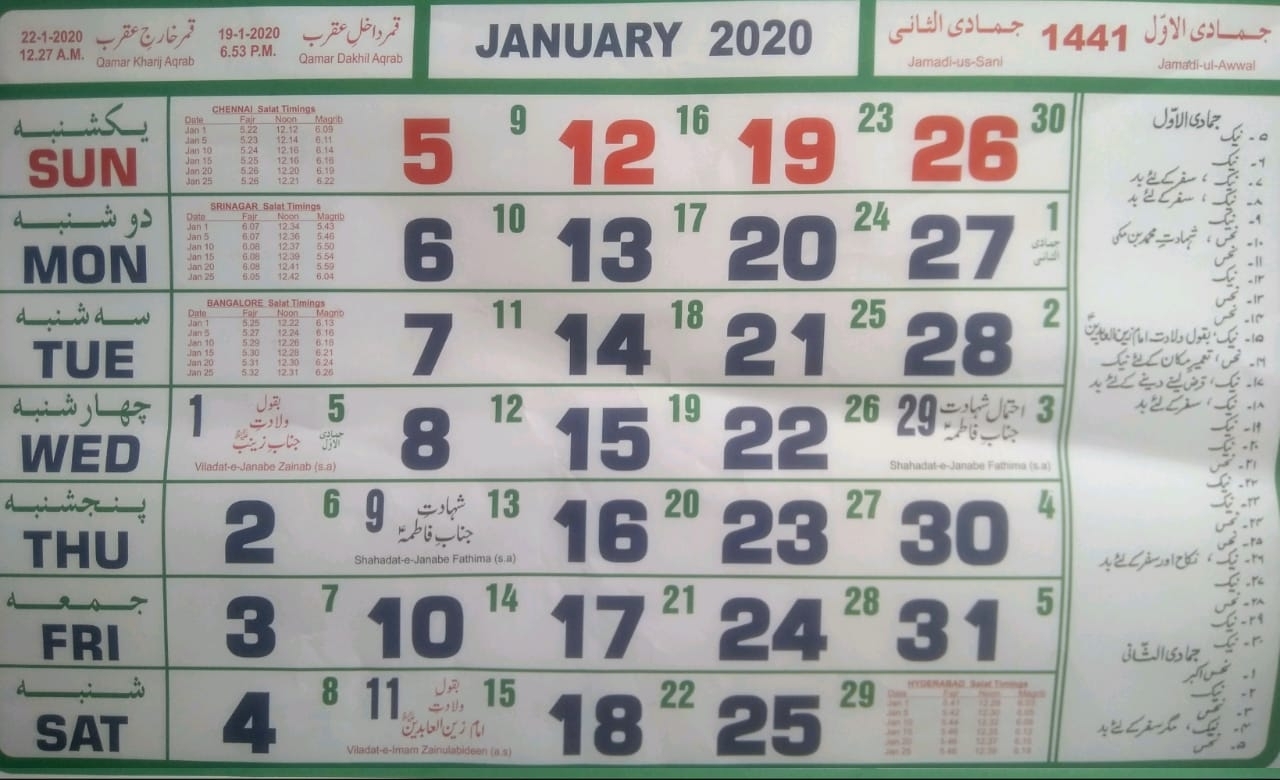 22-1-2020 قمر خارجِ عقرب 19-1-2020 قمر داخلِ عقرب
12.27 A.M. Qamar Kharij Aqrab 6.53 P.M. Qamar Dakhil Aqrab
JANUARY 2020
جمادی الاوّل 1441 جمادی الثانی
Jamadi-us-Sani Jamadi-ul-Awwal
یکشنبہ
SUN
CHENNAI Salat Timings
Date Fajr Noon Magrib
Jan 1 5.22 12.12 6.09
Jan 5 5.23 12.14 6.11
Jan 10 5.24 12.16 6.14
Jan 15 5.25 12.16 6.16
Jan 20 5.26 12.20 6.19
Jan 25 5.26 12.21 6.22
5 9 12 16 19 23 26 30
دو شنبہ
MON
SRINAGAR Salat Timings
Date Fajr Noon Magrib
Jan 1 6.07 12.34 5.43
Jan 5 6.07 12.36 5.46
Jan 10 6.08 12.37 5.50
Jan 15 6.08 12.39 5.54
Jan 20 6.08 12.41 5.59
Jan 25 6.05 12.42 6.04
6 10 13 17 20 24 27 1
جمادی الثانی
سہ شنبہ
TUE
BANGALORE Salat Timings
Date Fajr Noon Magrib
Jan 1 5.25 12.22 6.13
Jan 5 5.27 12.24 6.16
Jan 10 5.29 12.26 6.18
Jan 15 5.30 12.28 6.21
Jan 20 5.31 12.30 6.24
Jan 25 5.32 12.31 6.26
7 11 14 18 21 25 28 2
چهارشنبہ
WED
1 بقول ولادتِ جنابِ زینبؑ 5 جمادی الاوّل
Viladat-e-Janabe Zainab (s.a)
8 12 15 19 22 26
29 احتمال شہادت جنابِ فاطمہؑ 3
Shahadat-e-Janabe Fathima (s.a)
پنجشنبہ
THU
2 6
9 شہادتِ جنابِ فاطمہؑ 13
Shahadat-e-Janabe Fathima (s.a)
16 20 23 27 30 4
جمعہ
FRI
3 7 10 14 17 21 24 28 31 5
شنبہ
SAT
4 8
11 بقول ولادتِ امام زین العابدینؑ 15
Viladat-e-Imam Zainulabideen (a.s)
18 22 25 29
HYDERABAD Salat Timings
Date Fajr Noon Magrib
جمادی الاوّل
۵۔ نیک
۶۔ نیک
۷۔ نیک، سفر کے لئے بد
۸۔ نیک، سفر کے لئے بد
۹۔ نیک
۱۰۔ نحس، شہادتِ محمد بن مکی
۱۱۔ نیک
۱۲۔ نیک
۱۳۔ نحس
۱۴۔ نحس
۱۵۔ نیک، بقول ولادت امام زین العابدینؑ
۱۶۔ نحس، تعمیر مکان کے لئے نیک
۱۷۔ نیک، قرض لینے دینے کے لئے بد
۱۸۔ نیک، سفر کے لئے بد
۱۹۔ نیک
۲۰۔ نیک
۲۱۔ نحس
۲۲۔ نیک
۲۳۔ نیک
۲۴۔ نحس
۲۵۔ نحس
۲۶۔ نیک، نکاح اور سفر کے لئے بد
۲۷۔ نیک
۲۸۔ نحس
۲۹۔ نیک
۳۰۔ نیک
جمادی الثانی
۱۔ نحس اکبر
۲۔ نیک
۳۔ نحس
۴۔ نیک، مگر سفر کے لئے بد
۵۔ نحس